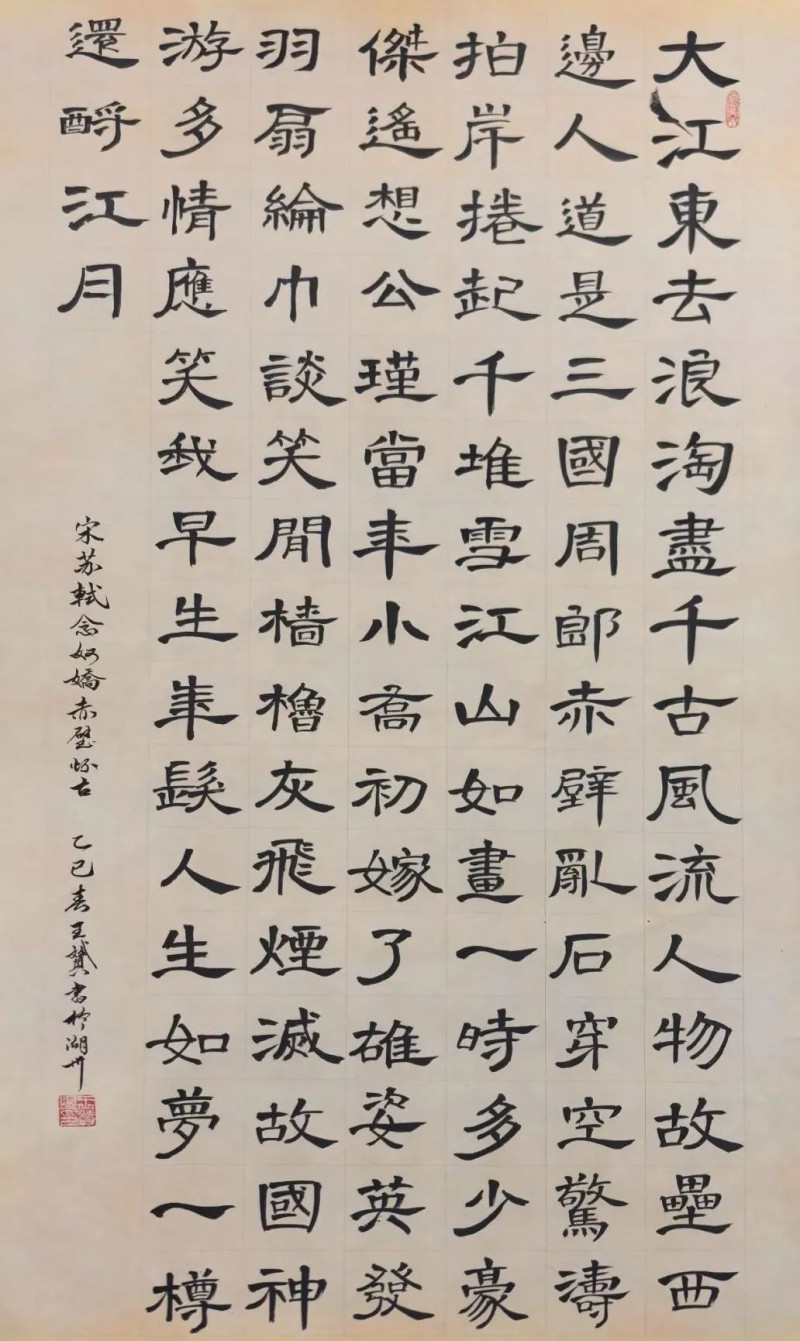 大江東去浪淘盡千古風流人物故壘西
邊人道是三國周郎赤壁亂石穿空驚濤
拍岸捲起千堆雪江山如畫一時多少豪
傑遙想公瑾當年小喬初嫁了雄姿英發
羽扇綸巾談笑間檣櫓灰飛煙滅故國神
游多情應笑我早生華髮人生如夢一樽
還酹江月
宋苏軾念奴嬌赤壁怀古 乙巳春王贊書於湖州